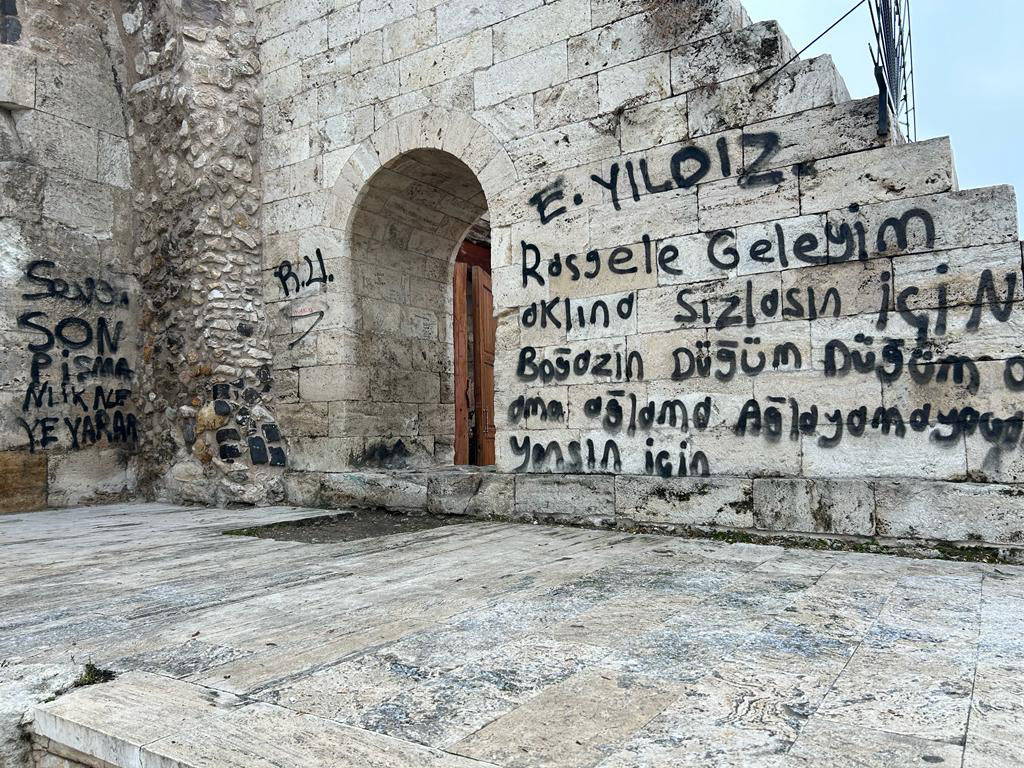 SON
PişMA
NLIK NE
YE YARAR
R.U.
E. YILDIZ.
Rasgele Geleyim
aKlına Sızlasın içiN
Boğazın Düğüm Düğüm o
ama ağlama Ağlayamayası
Yansın için